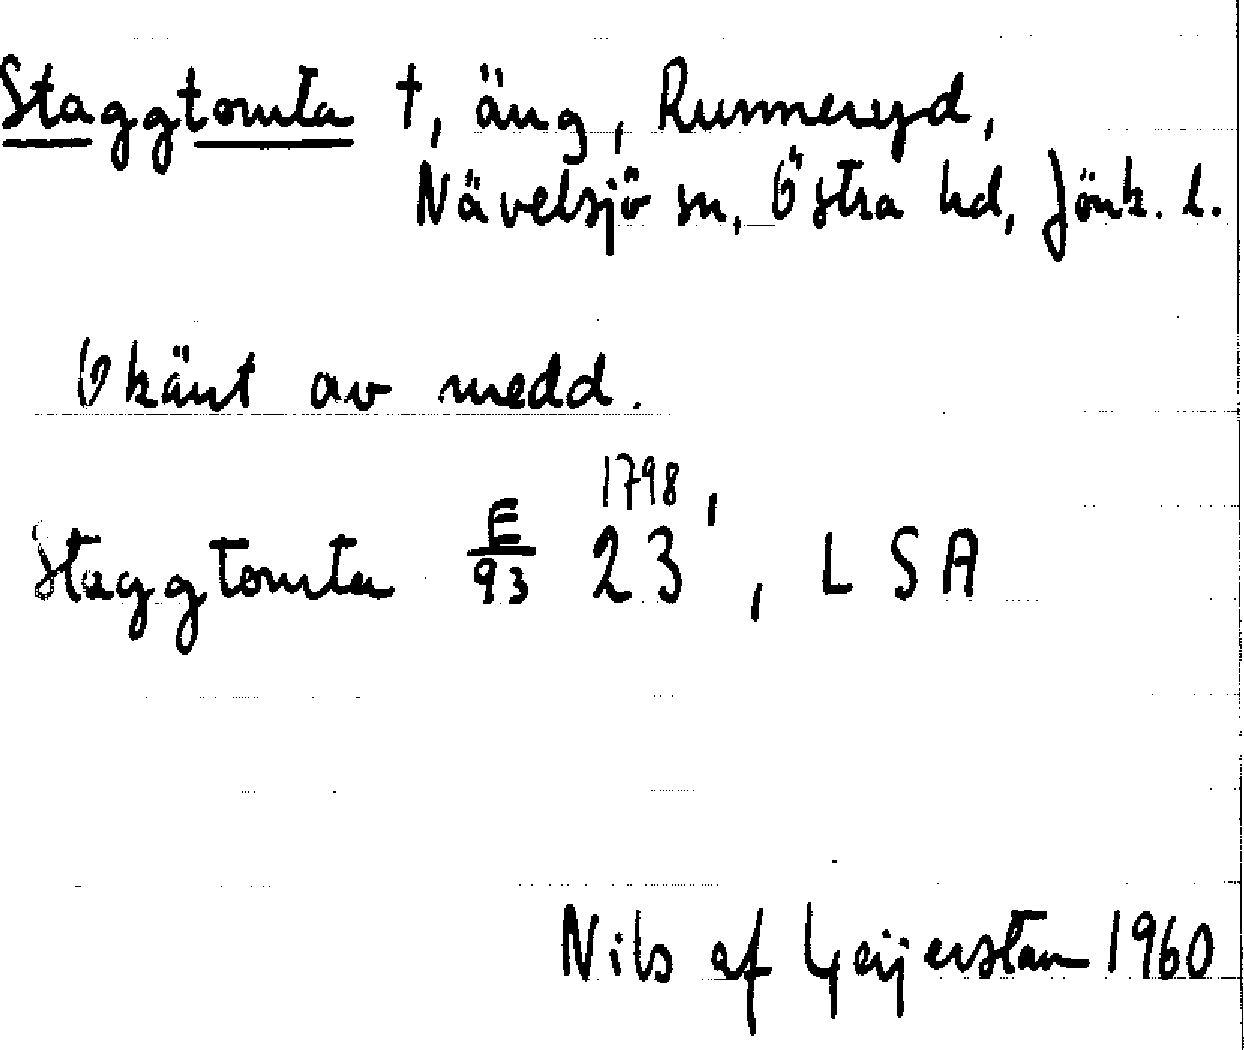 Staggtomta †, äng, Runneryd,
Nävelsjö sn, Östra hd, Jönk. l.
Okänt av medd.
Staggtomta E/93 23 1798, , LSA
Nils af Geijerstam 1960